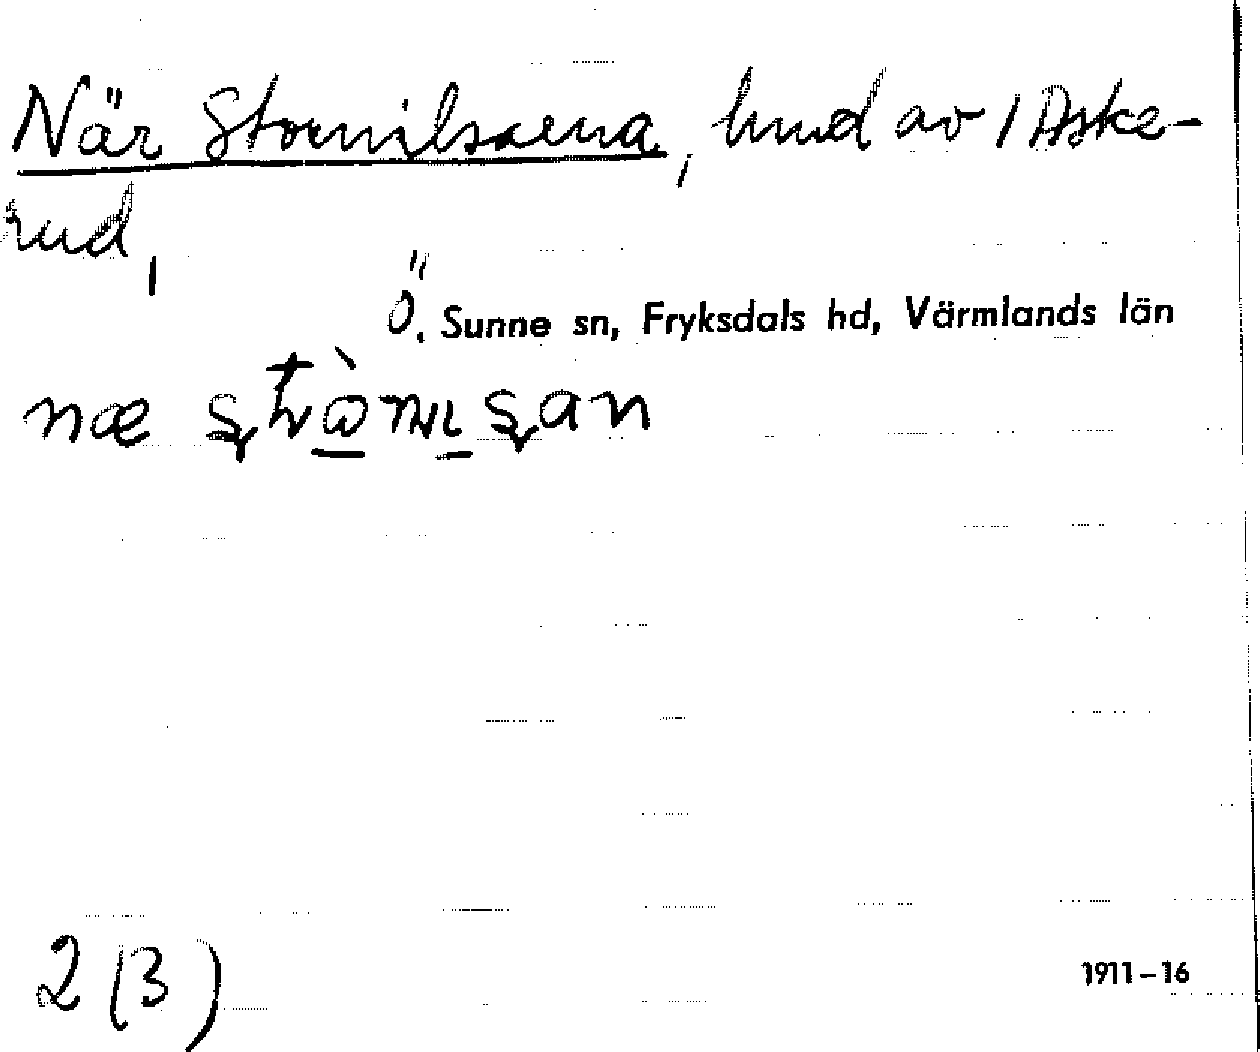 När Stornilsaena, hmd av 1 Aske-
rud,
Ö. Sunne sn, Fryksdals hd, Värmlands län
næ
2 (3)
1911–16